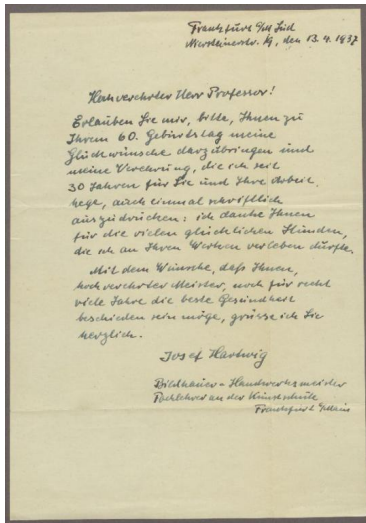 Frankfurt a/M Süd
Niersteinerstr. 19, den 13.4.1937
Hochverehrter Herr Professor!
Erlauben Sie mir, bitte, Ihnen zu
Ihrem 60. Gebürtstag meine
Glückwünsche darzubringen und
meine Verehrung, die ich seit
30 Jahren für Sie und Ihre Arbeit,
hege, auch einmal schriftlich
auszudrücken: ich danke Ihnen
für die vielen glücklichen Stunden,
die ich an Ihren Werken verleben durfte.
Mit dem Wunsche, daß Ihnen,
hochverehrter Meister, noch für recht
viele Jahre die beste Gesundheit
beschieden sein möge, grüsse ich Sie
herzlich.
Josef Hartwig
Bildhauer - Handwerksmeister
Fachlehrer an der Kunstschule
Frankfurt a/Main